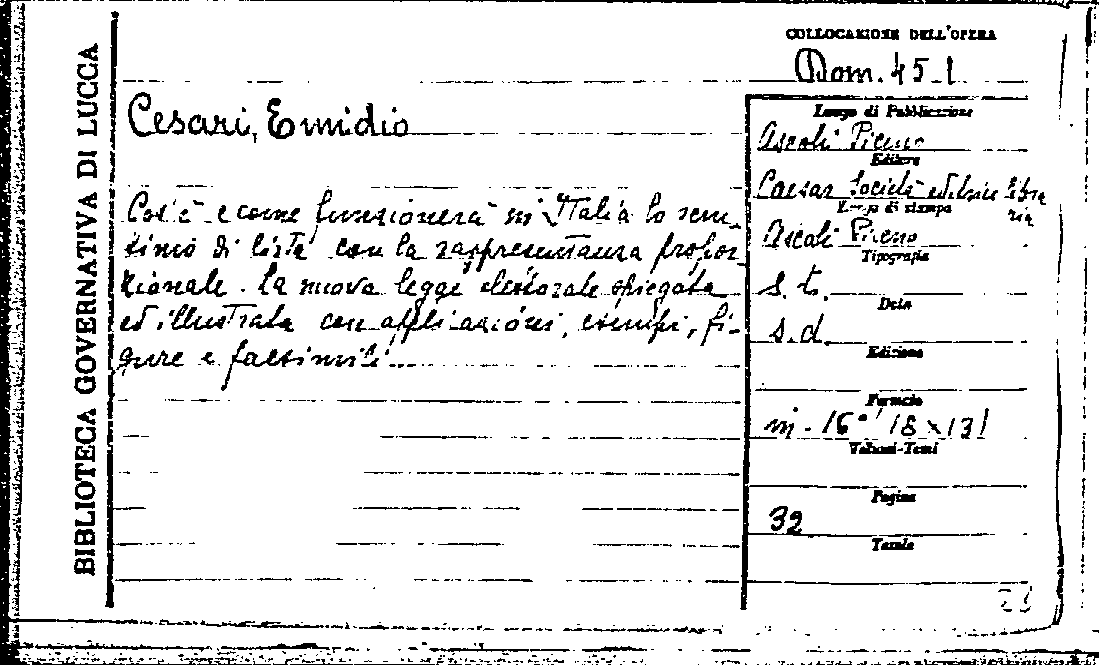 BIBLIOTECA GOVERNATIVA DI LUCCA
COLLOCAZIONE DELL'OPERA
Dom. 45-1
Cesari, Emidio
Cos'è e come funzionerà in Italia lo scru-
tinio di lista con la rappresentanza propor
zionale. La nuova legge elettorale spiegata
ed illustrata con applicazioni, esempi, fi-
gure e facsimili
Luogo di Pubblicazione
Ascoli Piceno
Editore
Caesar Società editrice libra
ria
Luogo di stampa
Ascoli Piceno
Tipografia
s.t.
Data
s.d.
Edizione
Formato
in-16° (18x13)
Volumi-Tomi
Pagine
32
Tavole